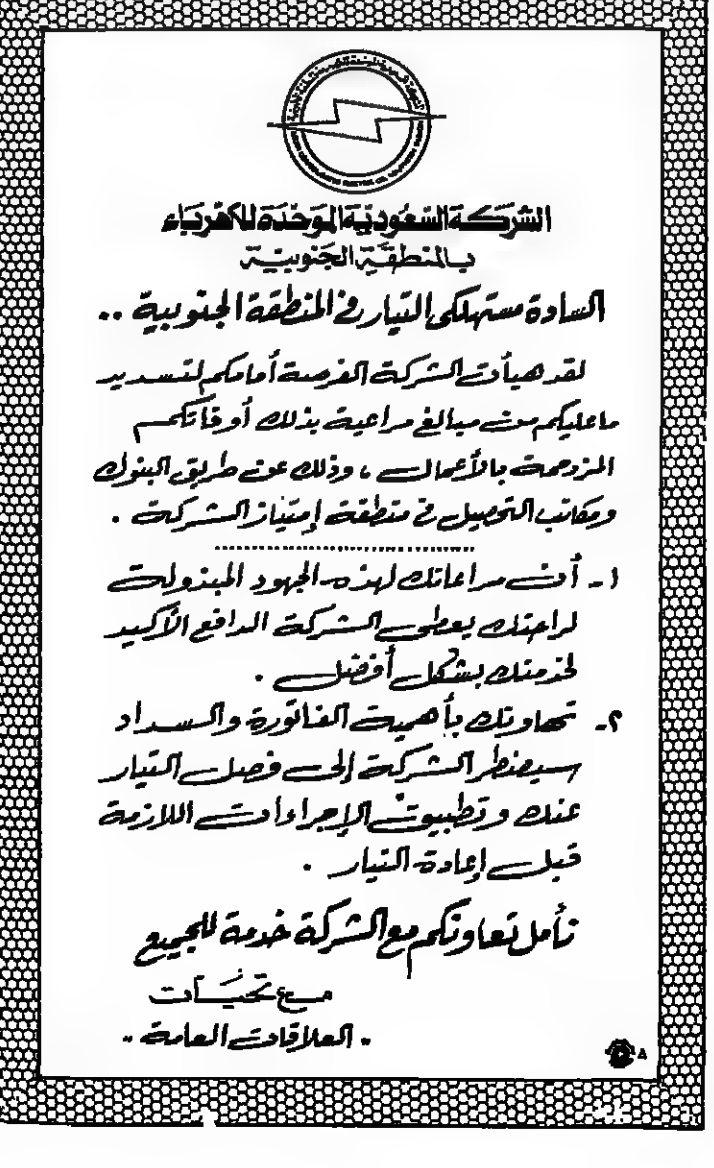 الشركة السعودية الموحدة للكهرباء
بالمنطقة الجنوبية
السادة مستهلكى التيار فى المنطقة الجنوبية ..
لقد هيأت الشركة الفرصة أمامكم لتسديد
ماعليكم من مبالغ مراعية بذلك أوقاتكم
المزدحمة بالأعمال ، وذلك عن طريق البنوك
ومكاتب التحصيل فى منطقة إمتياز الشركة .
١- أن مراعاتك لهذه الجهود المبذولة
لراحتك يعطى الشركة الدافع الأكيد
لخدمتك بشكل أفضل .
٢- تهاونك بأهمية الفاتورة والسداد
سيضطر الشركة إلى فصل التيار
عنك وتطبيق الإجراءات اللازمة
قبل إعادة التيار .
نأمل تعاونكم مع الشركة خدمة للجميع
مع تحيات
. العلاقات العامة ..
٨